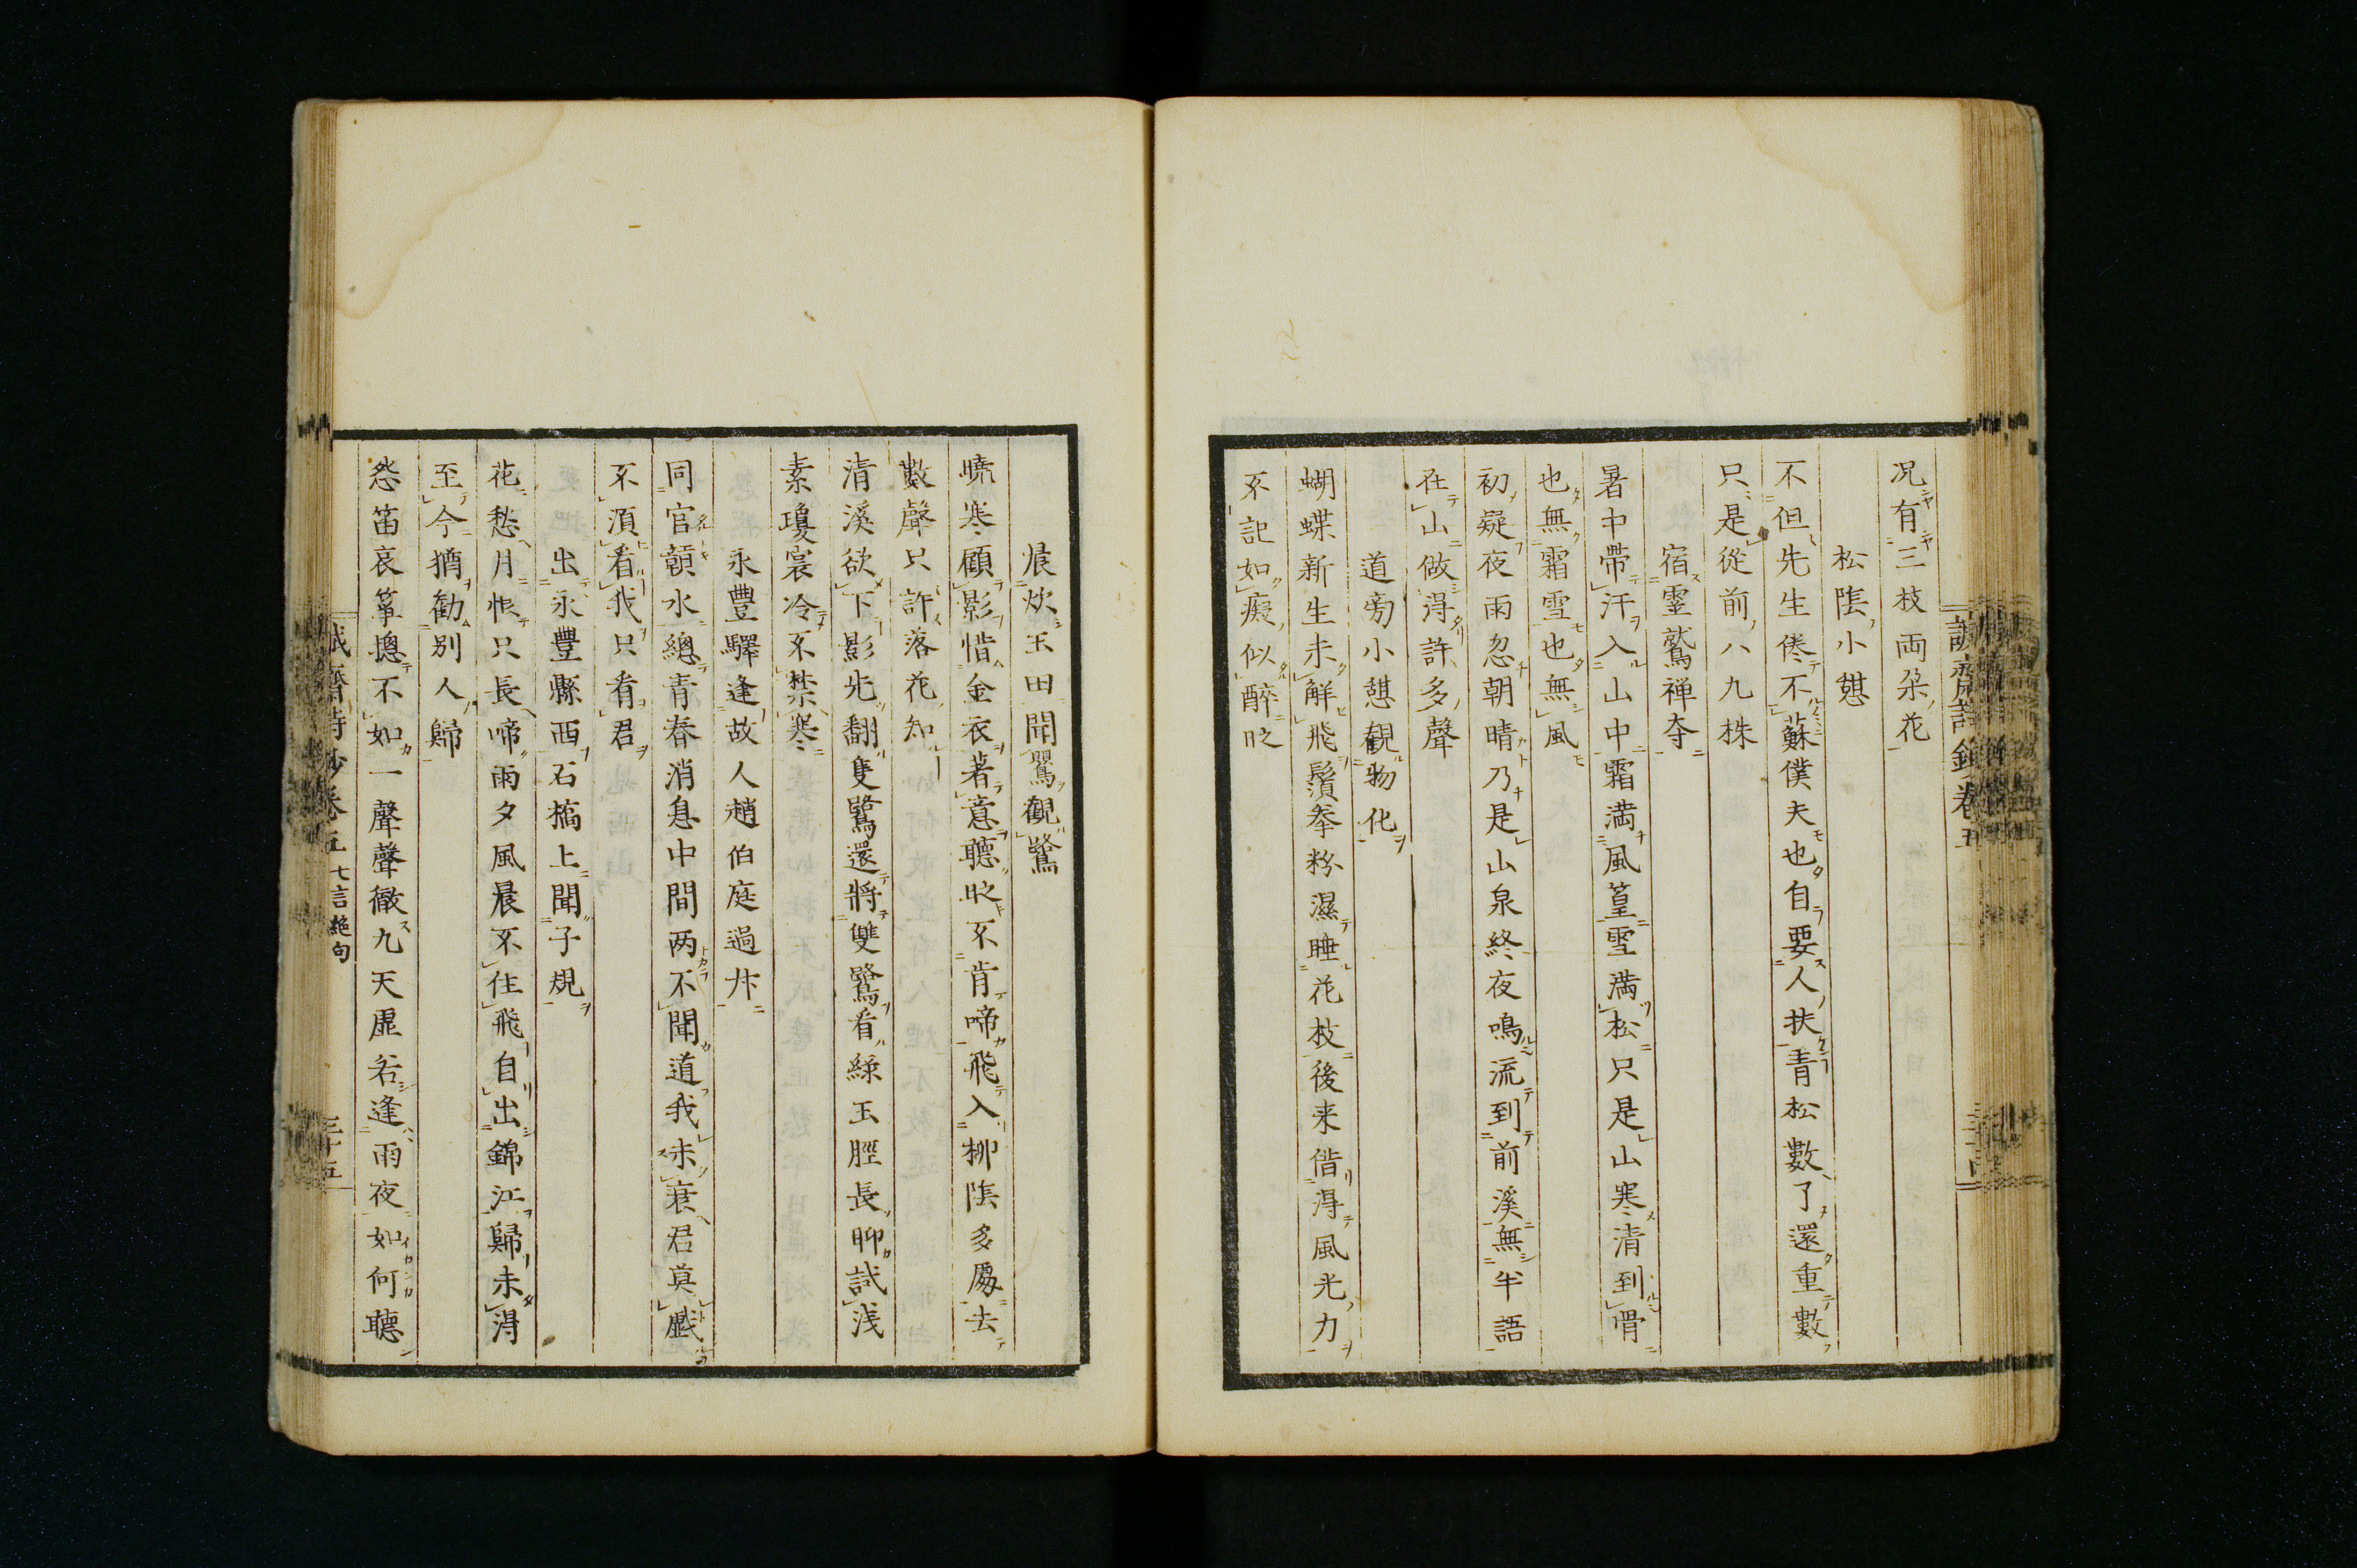 況有三枝両朶花
松陰小憇
不但先生倦不蘇僕夫也自要人扶青松數了還重數
只是從前八九株
宿霊鷲禅寺
暑中帶汗入山中霜満風篁雪満松只是山寒清到骨
也無霜雪也無風
初疑夜雨忽朝晴乃是山泉終夜鳴流到前溪無半語
在山做得許多聲
道旁小憇觀物化
蝴蝶新生未解飛鬚拳粉濕睡花枝後来借得風光力
不記如癡似醉時
晨炊玉田聞鶯觀鷺
曉寒顧影惜金衣著意聽時不肯啼飛入柳陰多處去
數聲只許落花知
清溪欲下影先翻隻鷺還將雙鷺看緑玉脛長聊試浅
素瓊裳冷不禁寒
永豐驛逢故人趙伯庭過幷
同官韻水總青春消息中間両不聞道我未衰君莫戯
不須看我只看君
出永豐縣西石橋上聞子規
花愁月恨只長啼雨夕風晨不住飛自出錦江歸未得
至今猶勧別人歸
怨笛哀箏摠不如一聲聲徹九天虚若逢雨夜如何聽
誠齋詩鈔卷五 七言絶句 三十五